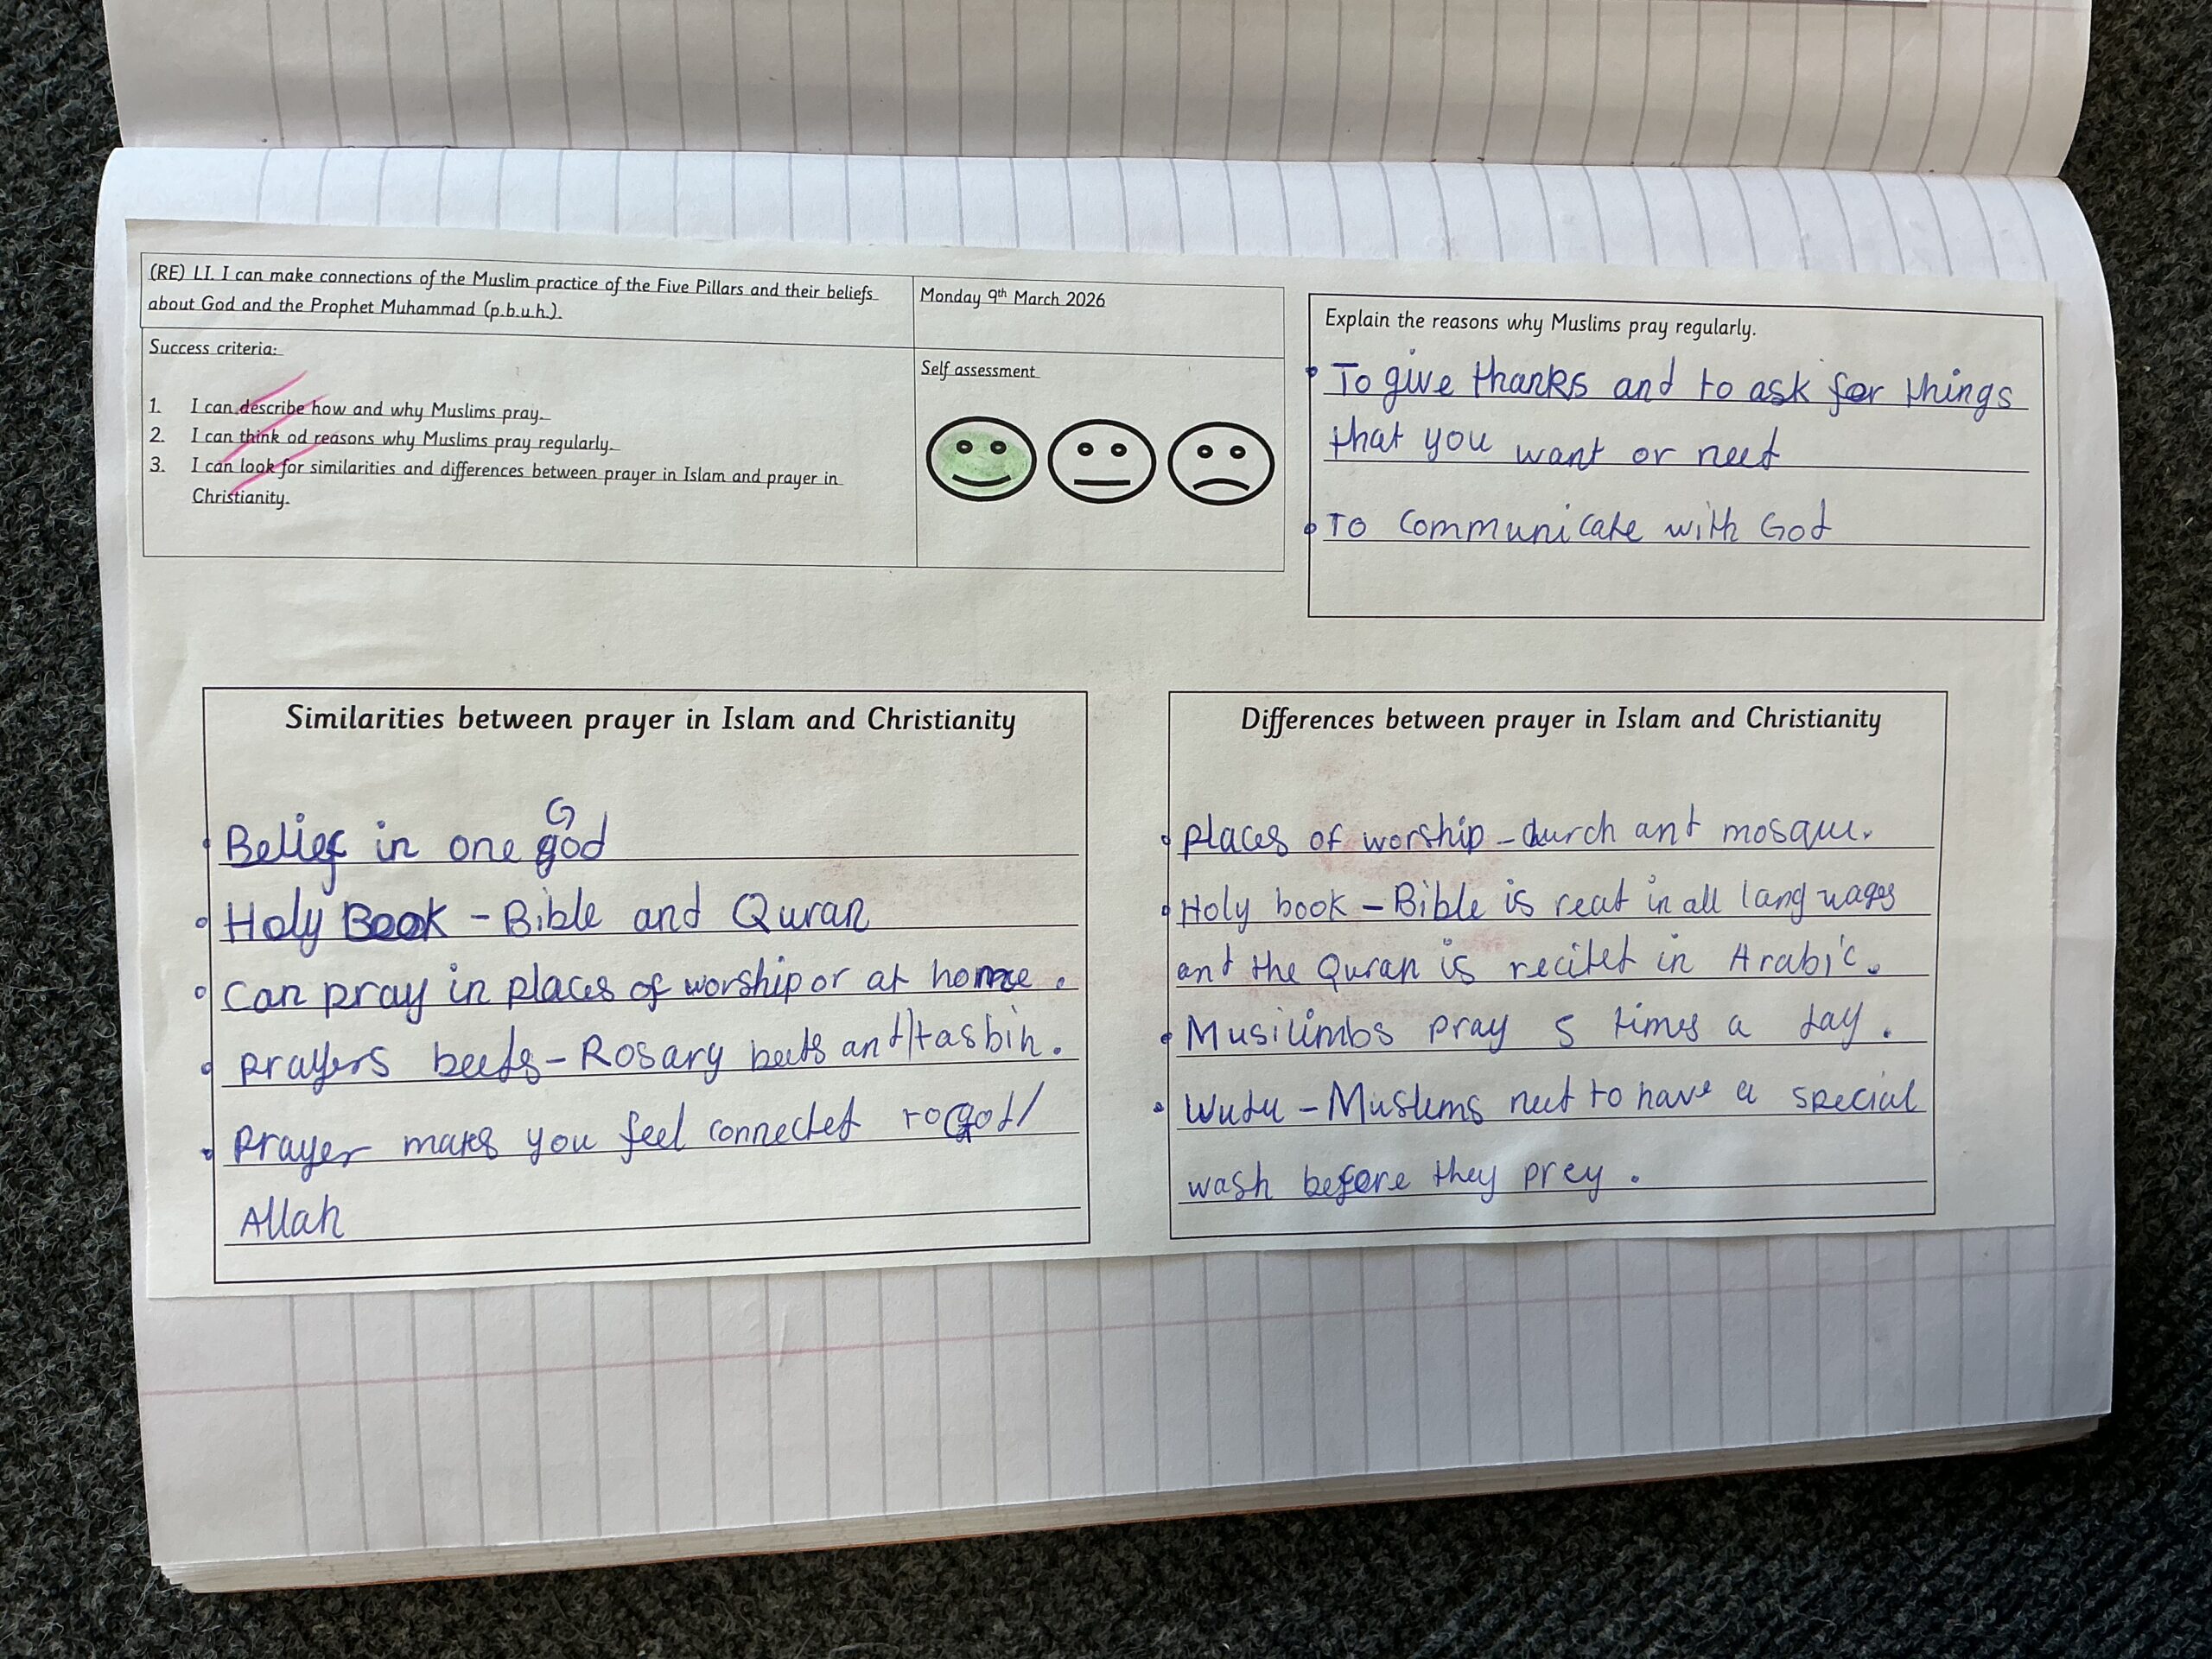 (RE) LI. I can make connections of the Muslim practice of the Five Pillars and their beliefs
about God and the Prophet Muhammad (p.b.u.h.).
Monday 9th March 2026
Success criteria:
1. I can describe how and why Muslims pray.
2. I can think od reasons why Muslims pray regularly.
3. I can look for similarities and differences between prayer in Islam and prayer in
Christianity.
Self assessment
Explain the reasons why Muslims pray regularly.
To give thanks and to ask for things
that you want or need
To communicate with God
Similarities between prayer in Islam and Christianity
G
Belief in one god
Holy Book - Bible and Quran
Can pray in places of worship or at home.
prayers beeds - Rosary beeds and/tasbih.
prayer makes you feel connected to God/
Allah
Differences between prayer in Islam and Christianity
places of worship - church and mosque.
Holy book - Bible is read in all languages
and the Quran is recited in Arabic.
Musilimbs pray 5 times a day.
Wudu - Muslims need to have a special
wash before they prey.